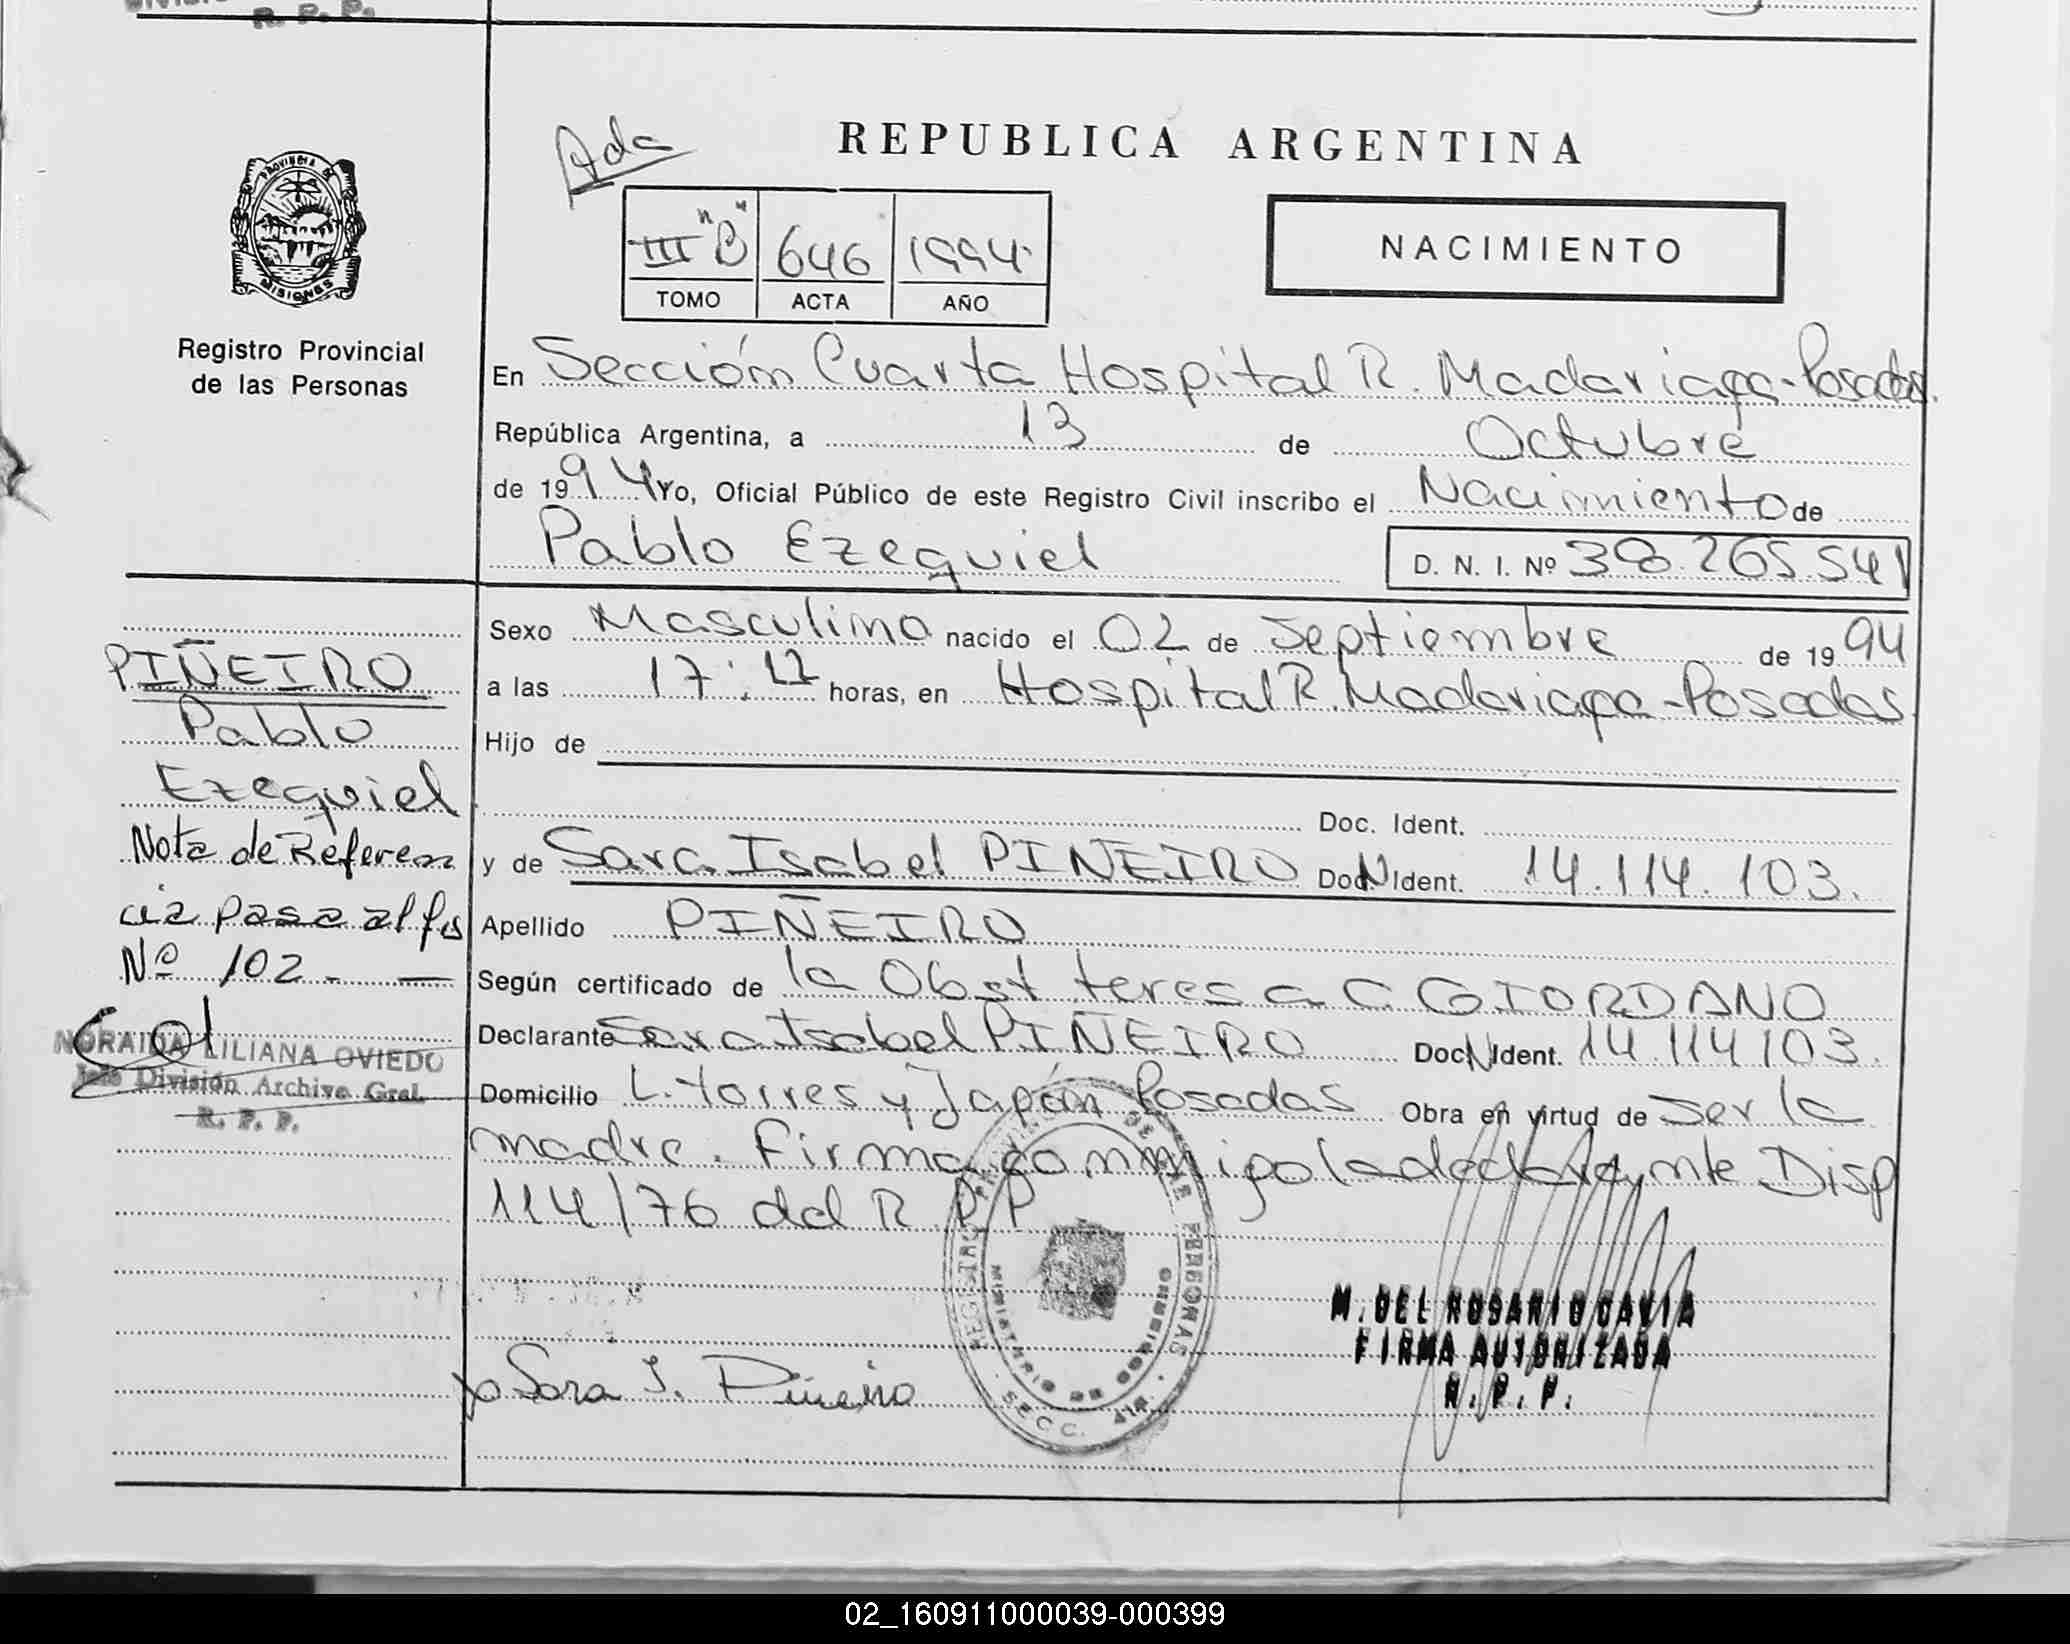 R. P. P.
Ada
REPUBLICA ARGENTINA
PROVINCIA DE
MISIONES
III "B" 646 1994
TOMO ACTA AÑO
NACIMIENTO
Registro Provincial
de las Personas
En Sección Cuarta Hospital R. Madariaga - Posadas.
República Argentina, a 13 de Octubre
de 1994 Yo, Oficial Público de este Registro Civil inscribo el Nacimiento de
Pablo Ezequiel D. N. I. Nº 38.265.541
PIÑEIRO
Pablo
Ezequiel
Nota de Referen
cia pasa al fis
Nº 102. —
NORAIDA LILIANA OVIEDO
Jefe División Archivo Gral.
R. P. P.
Sexo Masculino nacido el 02 de Septiembre de 1994
a las 17:12 horas, en Hospital R. Madariaga - Posadas
Hijo de
Doc. Ident.
y de Sara Isabel PIÑEIRO Doc. Ident. 14.114.103.
Apellido PIÑEIRO
Según certificado de la Obst teresa C GIORDANO
Declarante Sara Isabel PIÑEIRO Doc. Ident. 14.114103.
Domicilio L. torres y Japón Posadas Obra en virtud de ser la
madre. Firma conmigo la declarante Disp
114/76 del R P P
REGISTRO PROVINCIAL DE LAS PERSONAS
MINISTERIO DE GOBIERNO
SECC. 4ta.
M. DEL ROSARIO DAVIA
FIRMA AUTORIZADA
R. P. P.
Sara I. Piñeiro
02_160911000039-000399